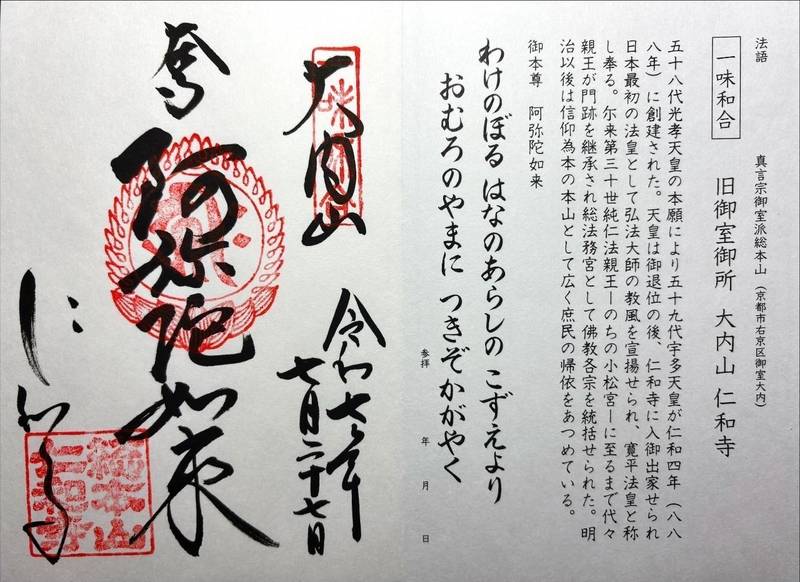 法語
一味和合
真言宗御室派総本山（京都市右京区御室大内）
旧御室御所 大内山 仁和寺
五十八代光孝天皇の本願により五十九代宇多天皇が仁和四年（八八
八年）に創建された。天皇は御退位の後、仁和寺に入御出家せられ
日本最初の法皇として弘法大師の教風を宣揚せられ、寛平法皇と称
し奉る。尓来第三十世純仁法親王―のちの小松宮―に至るまで代々
親王が門跡を継承され総法務宮として佛教各宗を統括せられた。明
治以後は信仰為本の本山として広く庶民の帰依をあつめている。
御本尊 阿弥陀如来
わけのぼる はなのあらしの こずえより
おむろのやまに つきぞかがやく
参拝 年 月 日
大内山
令和七年
七月二十七日
奉
阿弥陀如来
仁和寺
総本山
仁和寺